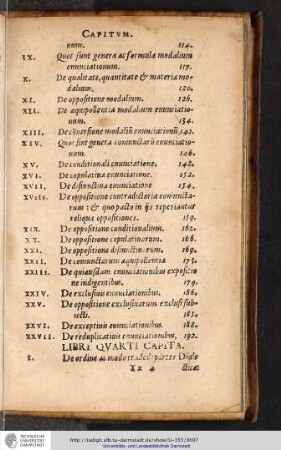 CAPITVM.
num. 114.
IX. Quot sunt genera ac formulæ modalium
enunciationum. 117.
X. De qualitate, quantitate & materia mo-
dalium. 120.
XI. De oppositione modalium. 126.
XII. De æquipollentia modalium enunciatio-
num. 134.
XIII. De cōuersione modaliū enunciationū, 141.
XIV. Quot sint genera coniunctarū enunciatio-
num. 146.
XV. De conditionali enunciatione. 142.
XVI. De copulatiua enunciatione. 152.
XVII. De disiunctiua enunciatione 154.
XVIII. De oppositione contradictoria coniuncta-
rum: & quo pacto in ijs reperiantur
reliquæ oppositiones. 159.
XIX. De oppositione conditionalium. 162.
XX. De oppositione copulatiuarum. 166.
XXI. De oppositione disiunctiuarum. 169.
XXII. De coniunctarum æquipollentia 173.
XXIII. De quibusdam enunciationibus expositio
ne indigentibus. 179.
XXIV. De exclusiuis enunciationibus. 180.
XXV. De oppositione exclusiuarum exclusi sub-
iecti. 185.
XXVI. De exceptiuis enunciationibus. 188.
XXVII. De reduplicatiuis enunciationibus, 192.
LIBRI QVARTI CAPITA.
I. De ordine ac modo tradēdi partes Diale
4 cticæ
TECHNISCHE
UNIVERSITÄT
DARMSTADT
http://tudigit.ulb.tu-darmstadt.de/show/
Universitäts- und Landesbibliothek Darmstadt